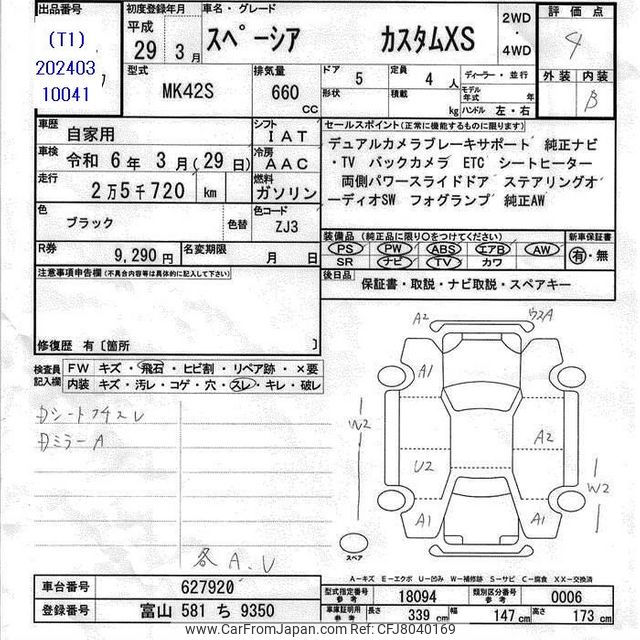 出品番号
(T1)
202403
10041
初度登録年月
平成
29 年 3 月
車名・グレード
スペーシア カスタムXS
2WD
・
4WD
評価点
4
外装 内装
B
型式
MK42S
排気量
660 CC
ドア 5 定員 4 人
形状 積載 kg
ディーラー・並行
モデル年式 年
ハンドル 左・右
車歴 自家用
シフト IAT
車検 令和 6 年 3 月 (29 日)
冷房 AAC
走行 2 万 5 千 720 km
燃料 ガソリン
色 ブラック 色替
色コード ZJ3
R券 9,290 円
名変期限 月 日
セールスポイント(正常に機能するものに限ります)
デュアルカメラブレーキサポート 純正ナビ
・TV バックカメラ ETC シートヒーター
両側パワースライドドア ステアリングオ
ーディオSW フォグランプ 純正AW
装備品 (純正品に限り○をつけてください)
新車保証書
PS PW ABS エアB AW
有・無
SR ナビ TV カワ
後日品
保証書・取説・ナビ取説・スペアキー
注意事項申告欄(不具合内容等は具体的に記入して下さい)
修復歴 有〔箇所 〕
検査員記入欄
FW キズ・飛石・ヒビ割・リペア跡・×要
内装 キズ・汚レ・コゲ・穴・スレ・キレ・破レ
Dシートフチスレ
Dミラー A
各 A.U
A2
ウスA
A1
W2
A2
U2
W2
A1
A1
スペア
A-キズ E-エクボ U-凹み W-補修跡 S-サビ C-腐食 XX-交換済
車台番号 627920
登録番号 富山 581 ち 9350
型式指定番号 参考 18094
類別区分番号 参考 0006
車体証明用 参考
長さ 339 cm 幅 147 cm 高さ 173 cm
www.CarFromJapan.com Ref: CFJ8040169